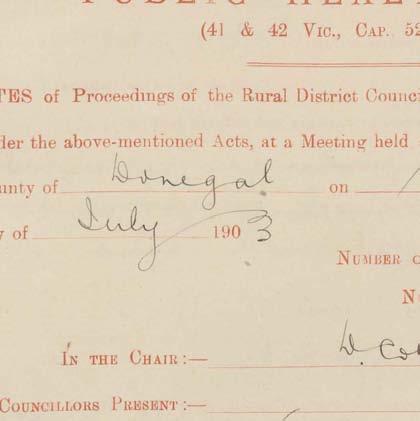 PUBLIC HEAL
(41 & 42 VIC., CAP. 52
TES of Proceedings of the Rural District Counci
der the above-mentioned Acts, at a Meeting held
unty of Donegal on
y of July 1903
NUMBER O
N
IN THE CHAIR:— D. Co
COUNCILLORS PRESENT:—